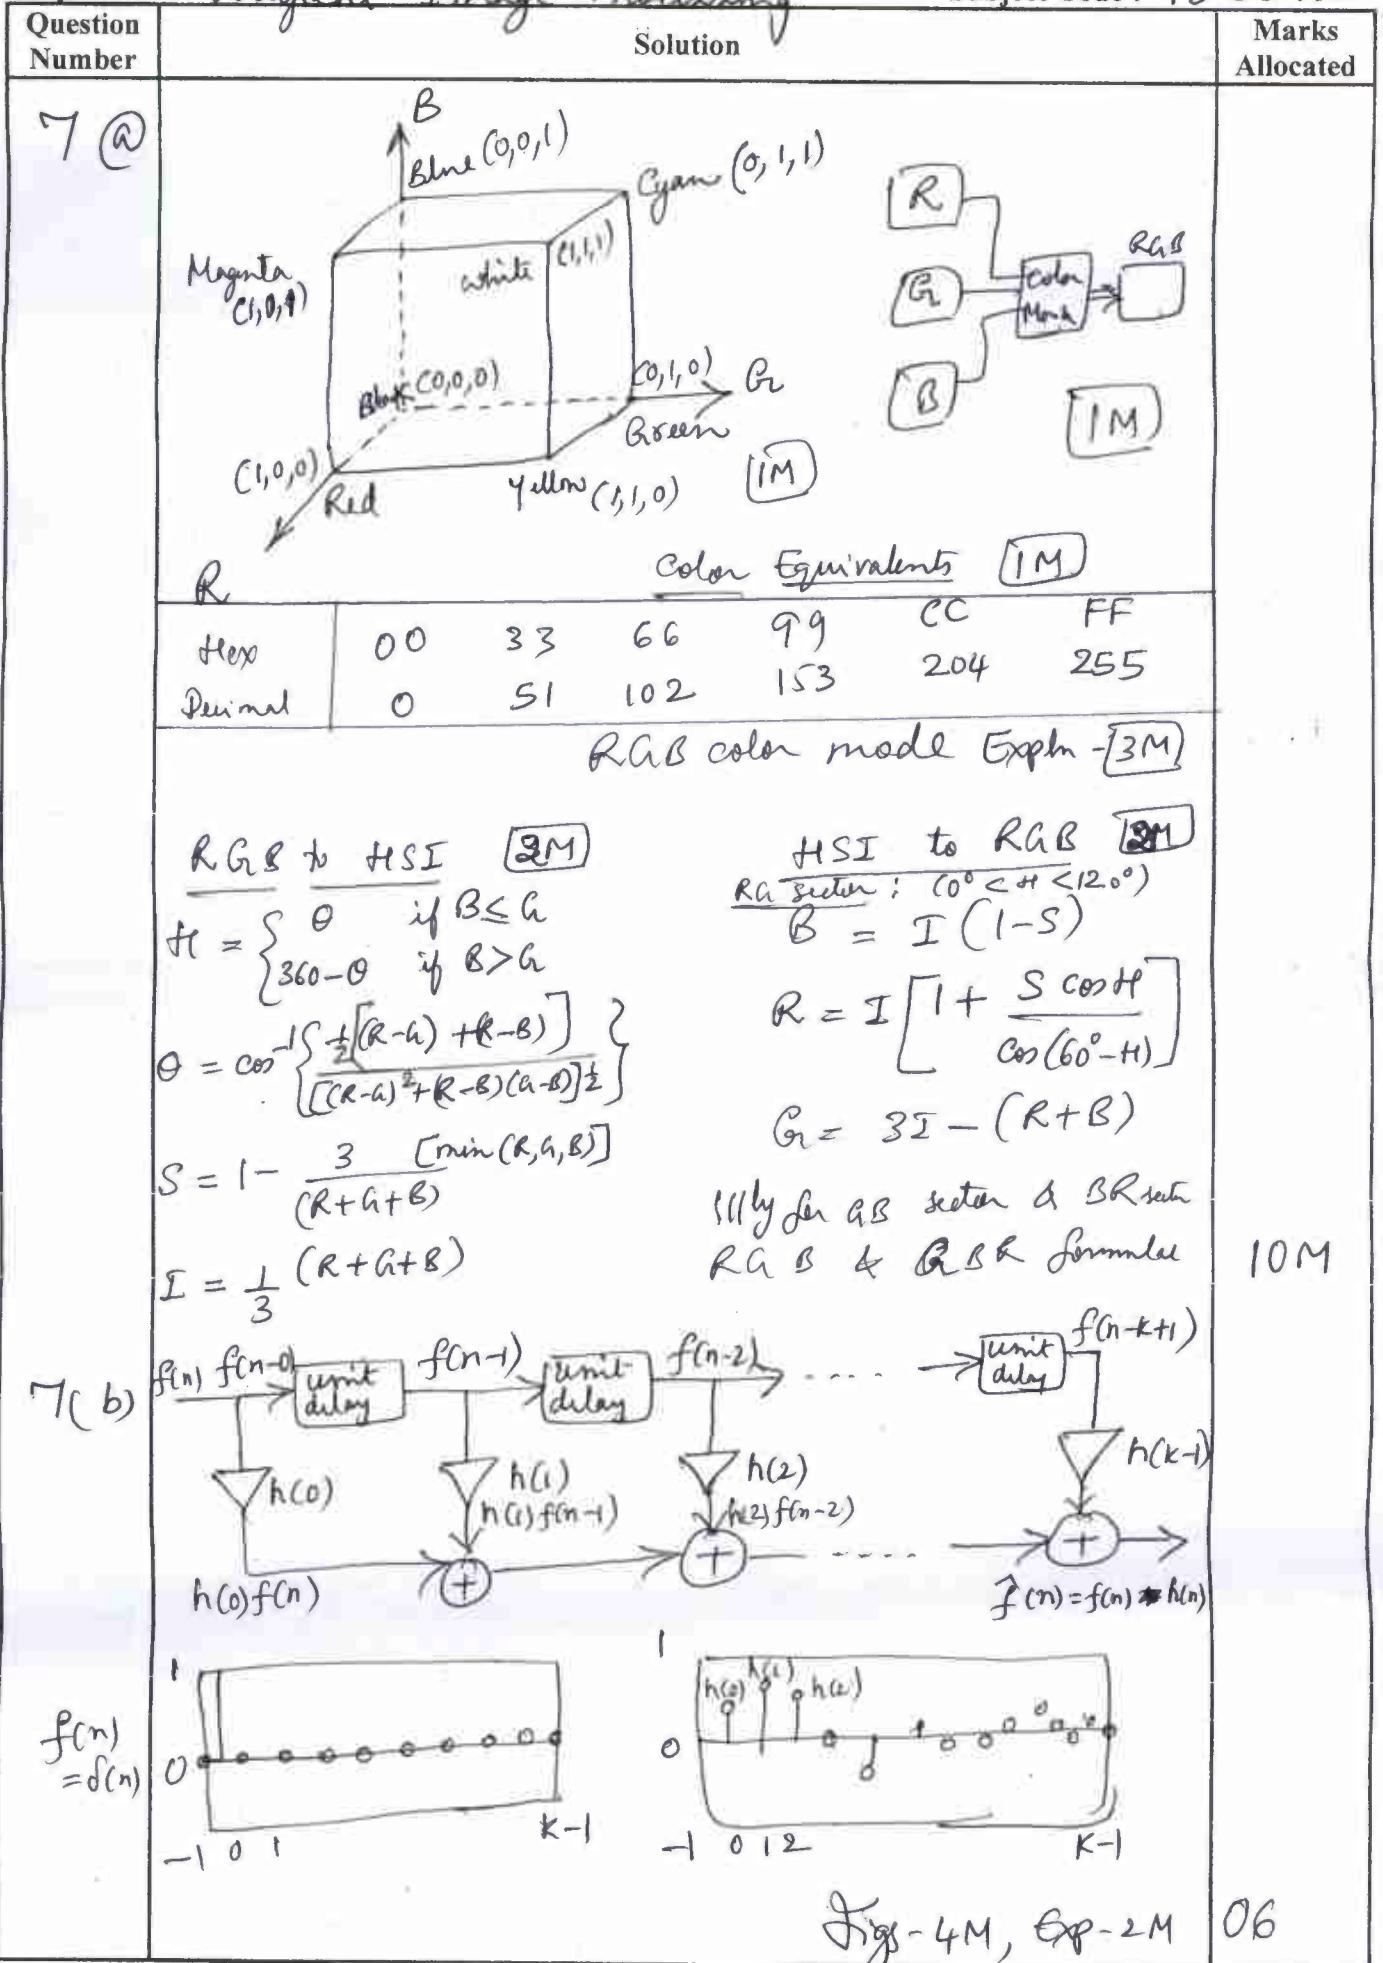 Image Processing
Question Number
Solution
Marks Allocated
7 (a)
B
Blue (0,0,1)
Cyan (0,1,1)
Magenta (1,0,1)
white (1,1,1)
Black (0,0,0)
(0,1,0)
G
Green
(1,0,0)
Red
Yellow (1,1,0)
R
1M
R
G
B
Color
RGB
1M
Color Equivalents 1M
Hex 00 33 66 99 CC FF
Decimal 0 51 102 153 204 255
RGB color mode Expln - 3M
RGB to HSI 2M
H = { θ if B≤G
360-θ if B>G
θ = cos⁻¹ { ½[(R-G)+(R-B)] / [(R-G)²+(R-B)(G-B)]^½ }
S = 1 - 3/(R+G+B) [min(R,G,B)]
I = 1/3 (R+G+B)
HSI to RGB 2M
RG sector : (0°<H<120°)
B = I(1-S)
R = I[1 + S cosH / cos(60°-H)]
G = 3I-(R+B)
|||ly for GB sector & BR sector
RGB & GBR formulae
10M
7(b)
f(n) f(n-0) unit delay f(n-1) unit delay f(n-2) ---- unit delay f(n-k+1)
h(0) h(1) h(2) h(k-1)
h(1)f(n-1) h(2)f(n-2)
+ + ---- +
h(0)f(n)
f̂(n)=f(n)*h(n)
f(n) =δ(n)
1
0
-1 0 1 K-1
1
h(0) h(1) h(2)
0
-1 0 1 2 K-1
Figs-4M, Exp-2M
06